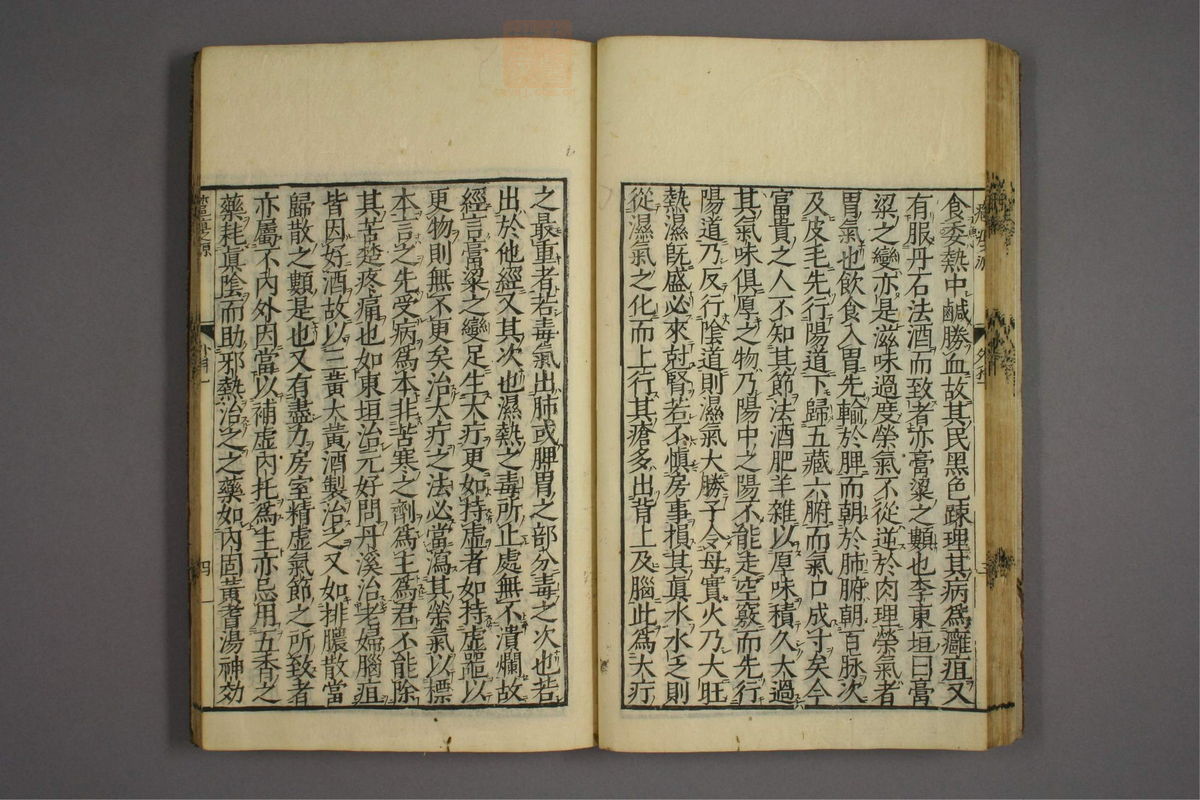 食委熱中鹹勝血故其民黑色疎理其病爲癰疽又
有服丹石法酒而致者亦膏粱之類也李東垣曰膏
粱之變亦是滋味過度榮氣不從逆於肉理榮氣者
胃氣也飲食入胃先輸於脾而朝於肺腑朝百脉次
及皮毛先行陽道下歸五藏六腑而氣口成寸矣今
富貴之人不知其節法酒肥羊雜以厚味積久太過
其氣味俱厚之物乃陽中之陽不能走空竅而先行
陽道乃反行陰道則濕氣大勝子令母實火乃大旺
熱濕旣盛必來尅腎若不愼房事損其眞水水乏則
從濕氣之化而上行其瘡多出背上及腦此爲大疔
之最重者若毒氣出肺或脾胃之部分毒之次也若
出於他經又其次也濕熱之毒所止處無不潰爛故
經言膏粱之變足生大疔更如持虛者如持虛器以
更物則無不更矣治大疔之法必當瀉其榮氣以標
本言之先受病爲本非苦寒之劑爲主爲君不能除
其苦楚疼痛也如東垣治元好問丹溪治老婦腦疽
皆因好酒故以三黃大黃酒製治之又如排膿散當
歸散之類是也又有盡力房室精虛氣節之所致者
亦屬不內外因當以補虛內托爲主亦忌用五香之
藥耗眞陰而助邪熱治之之藥如內固黃耆湯神効
四